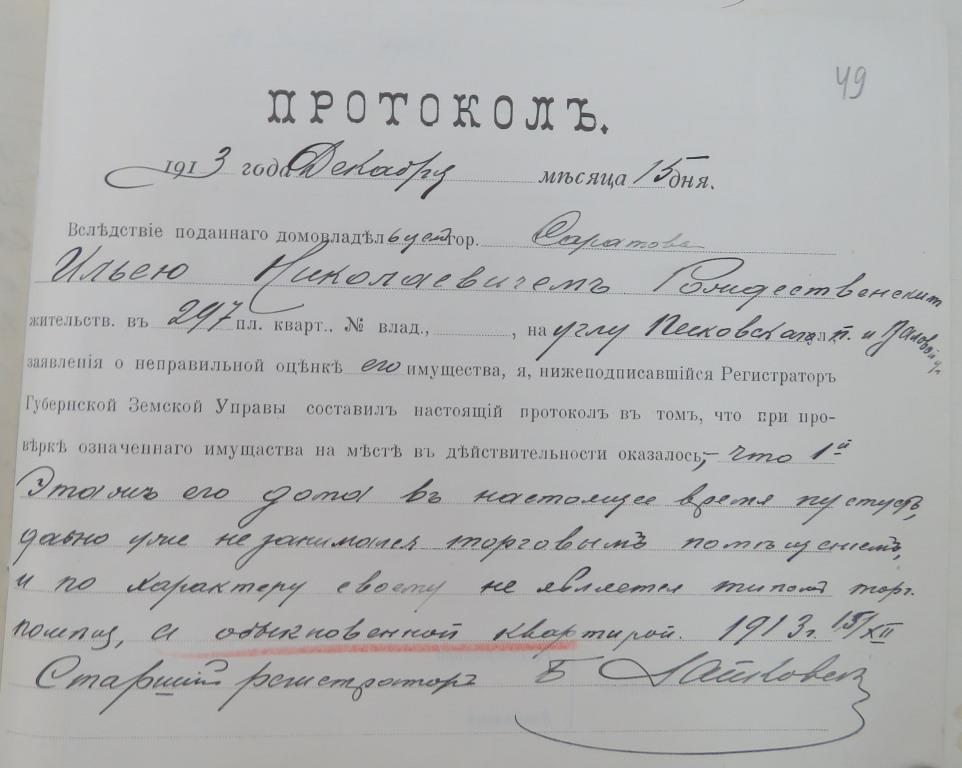 49
ПРОТОКОЛЪ.
1913 года Декабря мѣсяца 15 дня.
Вслѣдствіе поданнаго домовладѣльцемъ гор. Саратова
Ильею Николаевичемъ Рождественскимъ
жительств. въ 297 пл. кварт.. № влад., , на углу Песковской ул. и Валовой ул
заявленія о неправильной оцѣнкѣ его имущества, я, нижеподписавшійся Регистраторъ
Губернской Земской Управы составилъ настоящій протоколъ въ томъ, что при про-
вѣркѣ означеннаго имущества на мѣстѣ въ дѣйствительности оказалось, что 1й
Этажъ его дома въ настоящее время пустуетъ,
давно уже не занимался торговымъ помѣщеніемъ,
и по характеру своему не является типомъ торг.
помѣщ, а обыкновенной квартирой. 1913 г. 15/XII
Старшій регистраторъ Б